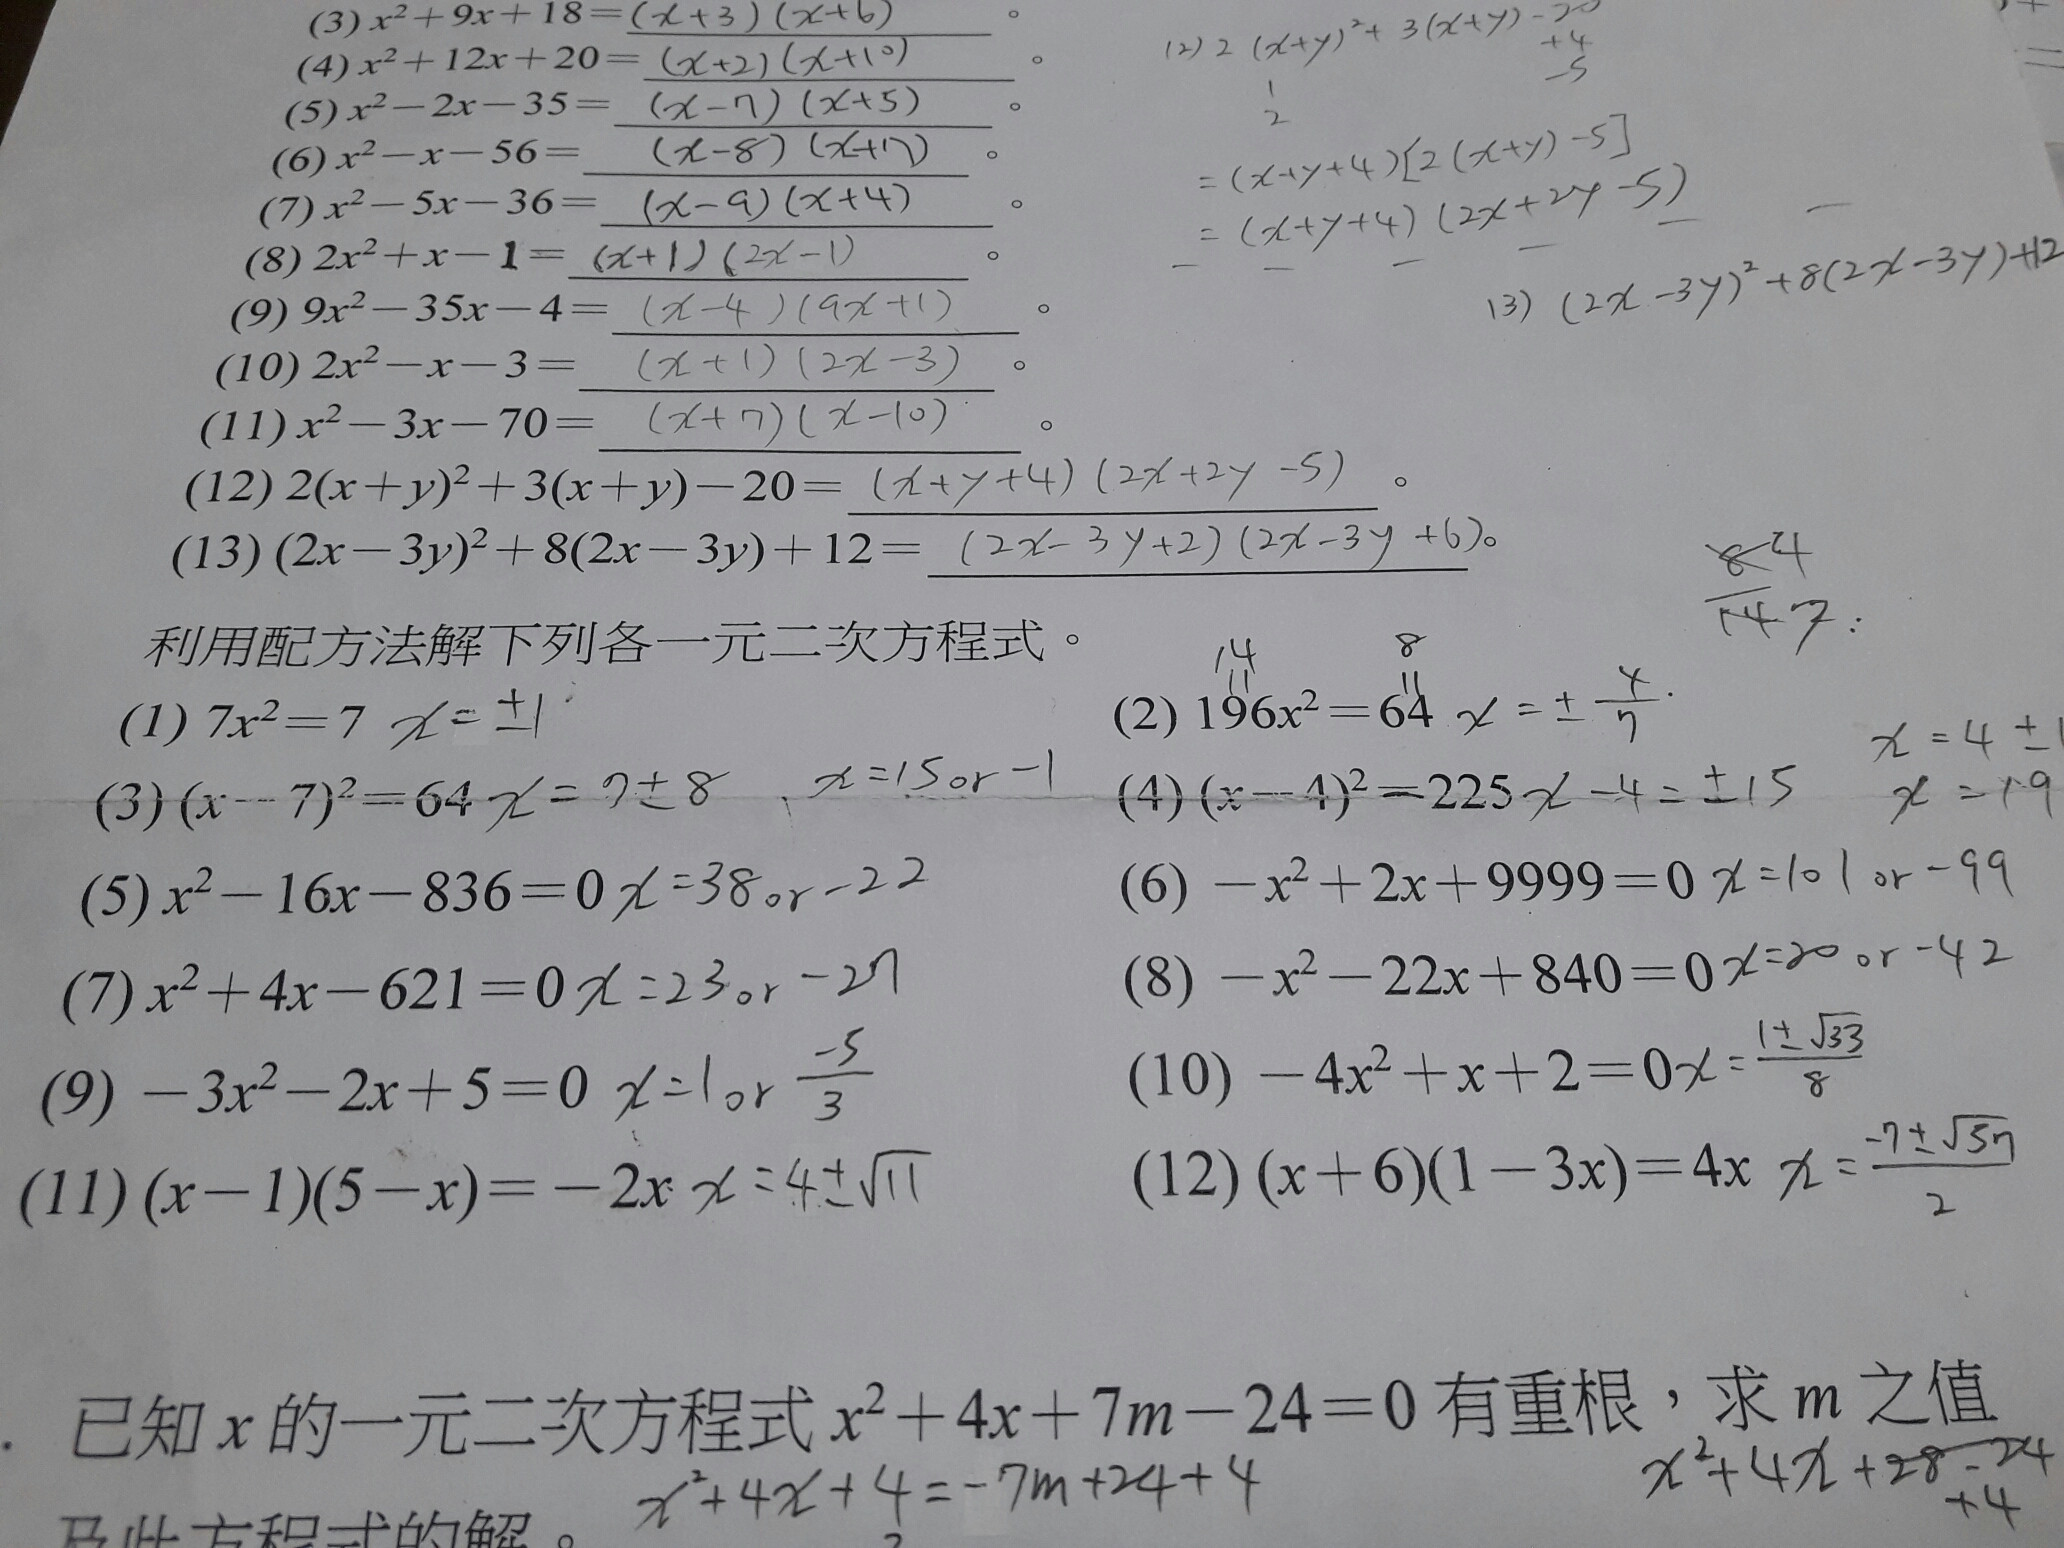 (3) x²+9x+18=(x+3)(x+6)。
(4) x²+12x+20=(x+2)(x+10)。
(5) x²-2x-35=(x-7)(x+5)。
(6) x²-x-56=(x-8)(x+7)。
(7) x²-5x-36=(x-9)(x+4)。
(8) 2x²+x-1=(x+1)(2x-1)。
(9) 9x²-35x-4=(x-4)(9x+1)。
(10) 2x²-x-3=(x+1)(2x-3)。
(11) x²-3x-70=(x+7)(x-10)。
(12) 2(x+y)²+3(x+y)-20=(x+y+4)(2x+2y-5)。
(13) (2x-3y)²+8(2x-3y)+12=(2x-3y+2)(2x-3y+6)。
(2) 2(x+y)²+3(x+y)-20
1 +4
2 -5
=(x+y+4)[2(x+y)-5]
=(x+y+4)(2x+2y-5)
13) (2x-3y)²+8(2x-3y)+12
8 4
14 7
利用配方法解下列各一元二次方程式。
(1) 7x²=7 x=±1
14 8
(2) 196x²=64 x=±4/7
(3) (x-7)²=64 x=7±8 x=15 or -1
(4) (x-4)²=225 x-4=±15
x=4±1
x=19
(5) x²-16x-836=0 x=38 or -22
(6) -x²+2x+9999=0 x=101 or -99
(7) x²+4x-621=0 x=23 or -27
(8) -x²-22x+840=0 x=20 or -42
(9) -3x²-2x+5=0 x=1 or -5/3
(10) -4x²+x+2=0 x=1±√33/8
(11) (x-1)(5-x)=-2x x=4±√11
(12) (x+6)(1-3x)=4x x=-7±√57/2
已知 x 的一元二次方程式 x²+4x+7m-24=0 有重根，求 m 之值
x²+4x+28-24
+4
x²+4x+4=-7m+24+4
及此方程式的解。